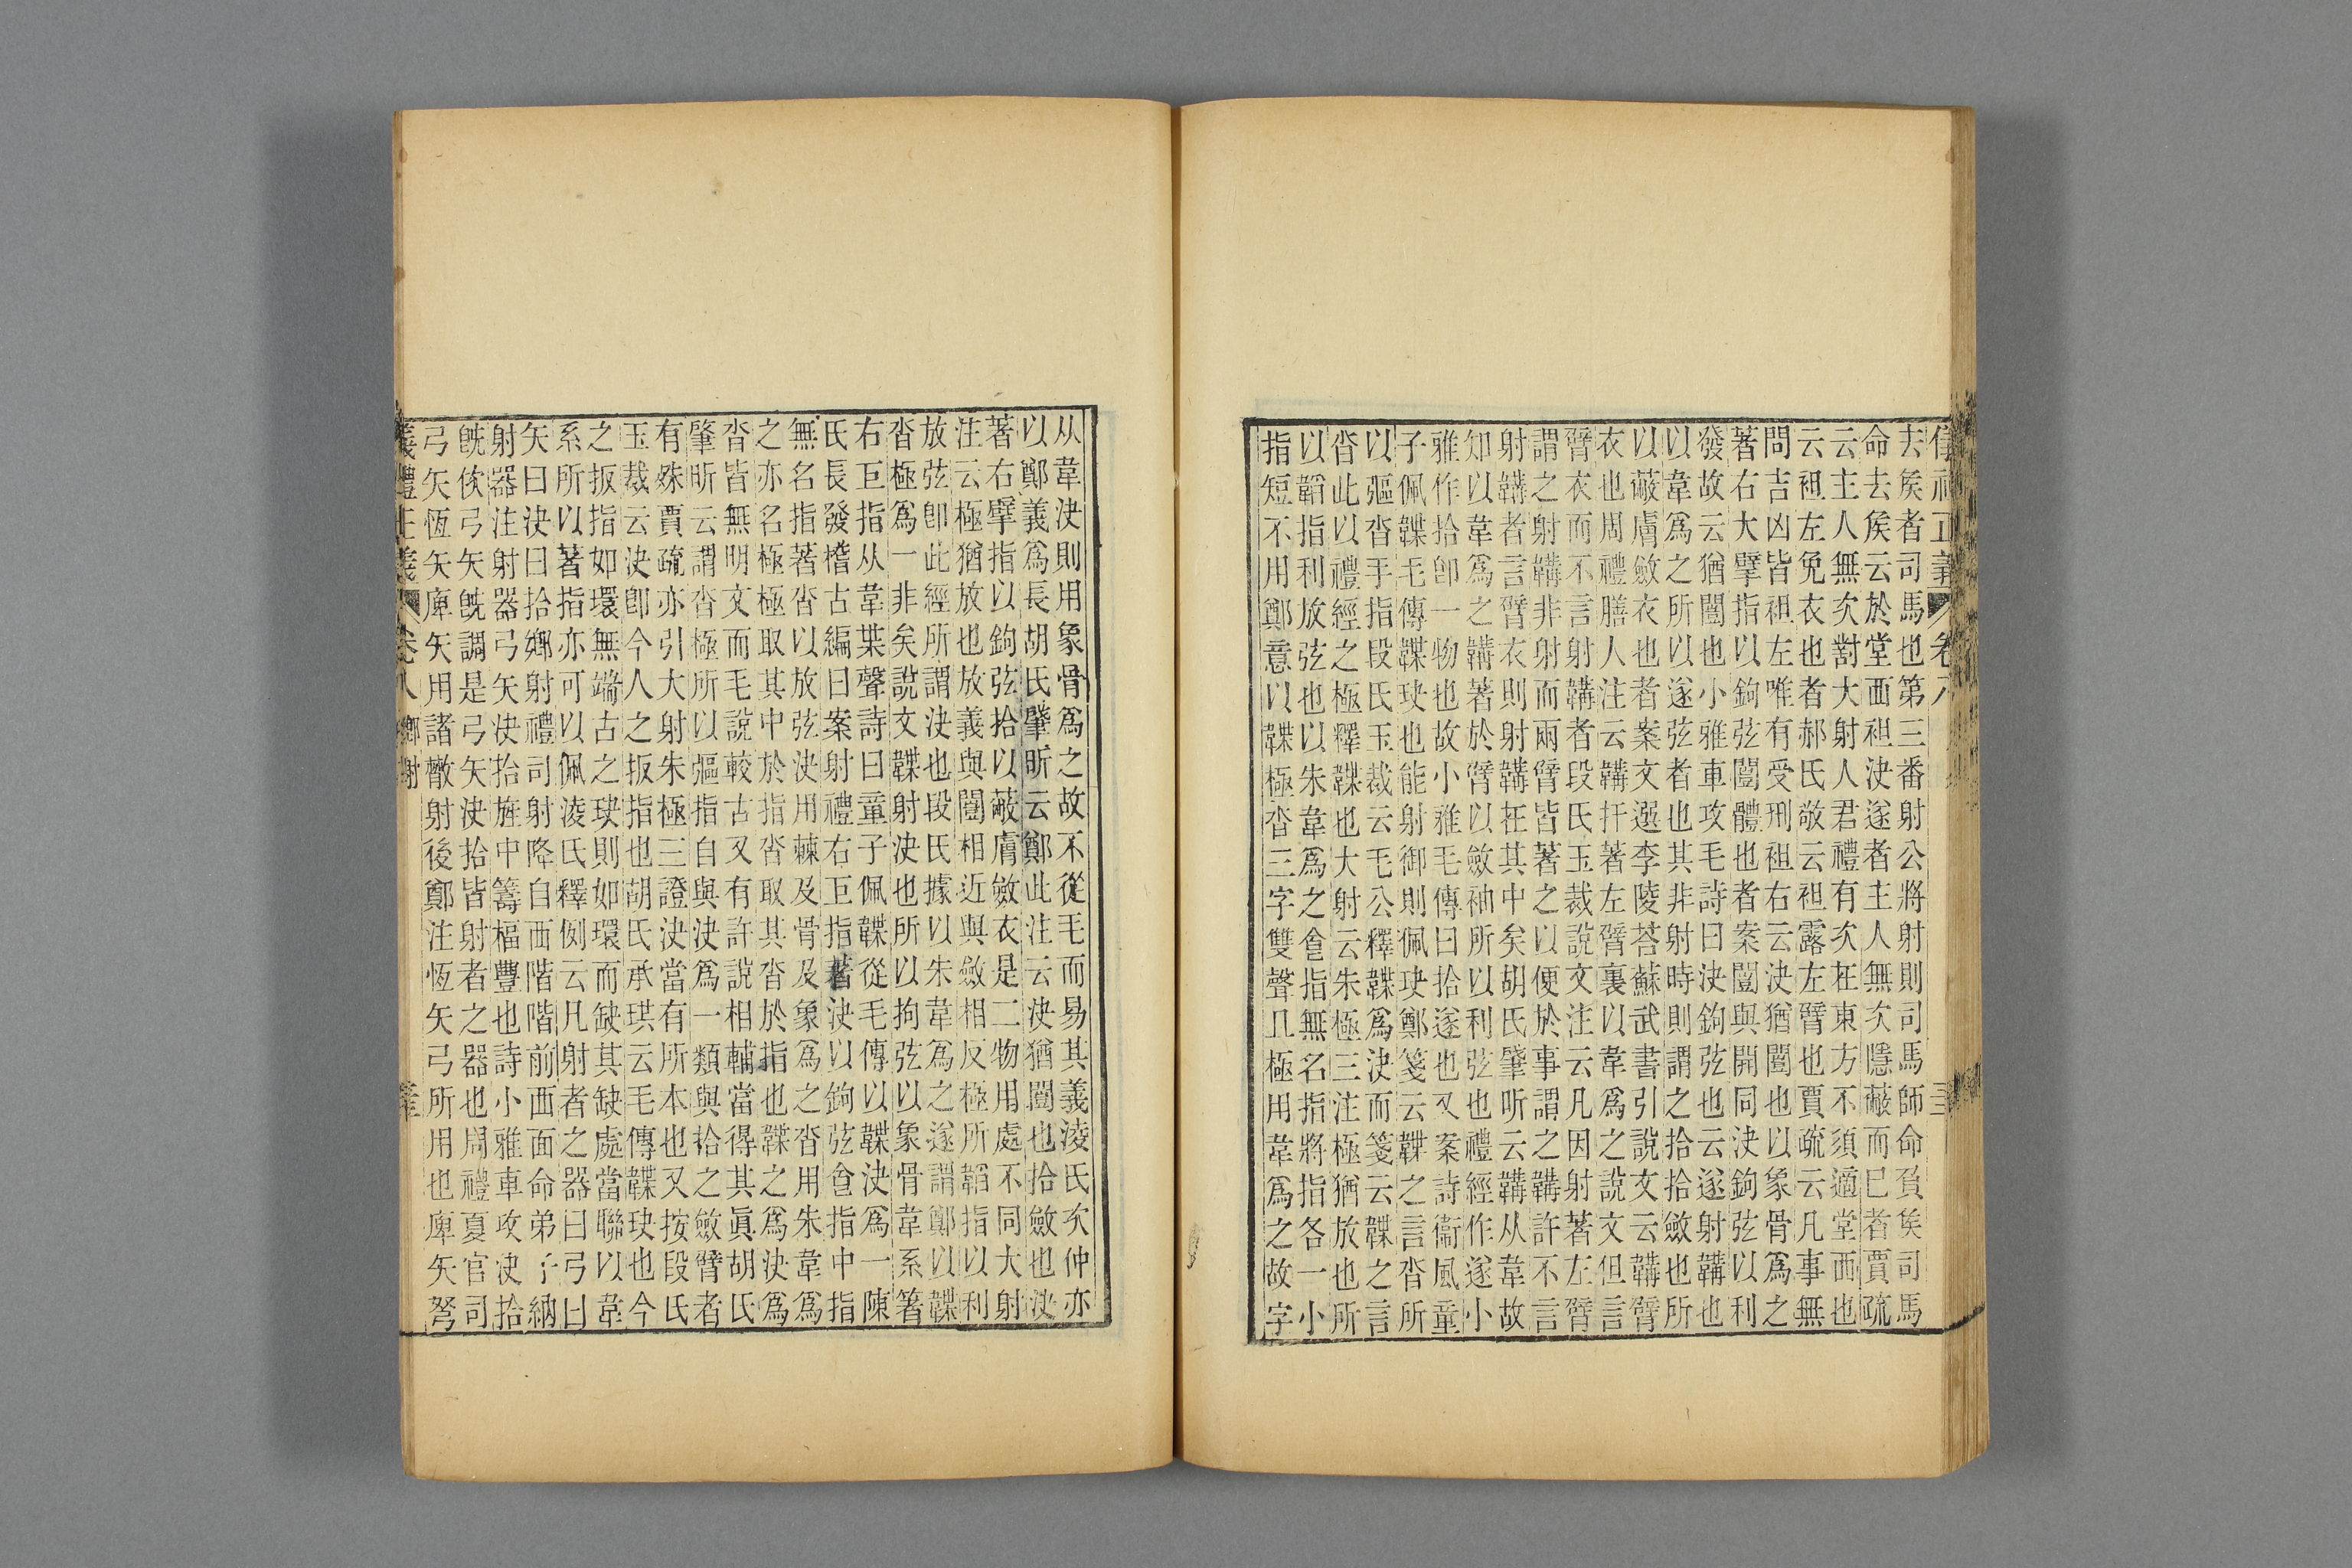 去矦者司馬也第三番射公將射則司馬師命負矦司馬
命去矦云於堂西袒決遂者主人無次隱蔽而已者賈疏
云主人無次對大射人君禮有次在東方不須適堂西也
云袒左免衣也者郝氏敬云袒露左臂也賈疏云凡事無
問吉凶皆袒左唯有受刑袒右云決猶闓也以象骨爲之
著右大擘指以鉤弦闓體也者案闓與開同決鉤弦以利
發故云猶闓也小雅車攻毛詩曰決鉤弦也云遂射韝也
以韋爲之所以遂弦者也其非射時則謂之拾拾斂也所
以蔽膚斂衣也者案文選李陵荅蘇武書引說文云韝臂
衣也周禮膳人注云韝扞著左臂裏以韋爲之說文但言
臂衣而不言射韝者段氏玉裁說文注云凡因射著左臂
謂之射韝非射而兩臂皆著之以便於事謂之韝許不言
射韝者言臂衣則射韝在其中矣胡氏肇昕云韝从韋故
知以韋爲之韝著於臂以斂袖所以利弦也禮經作遂小
雅作拾卽一物也故小雅毛傳曰拾遂也又案詩衞風童
子佩韘毛傳韘玦也能射御則佩玦鄭箋云韘之言沓所
以彄沓手指段氏玉裁云毛公釋韘爲決而箋云韘之言
沓此以禮經之極釋韘也大射云朱極三注極猶放也所
以韜指利放弦也以朱韋爲之食指無名指將指各一小
指短不用鄭意以韘極沓三字雙聲且極用韋爲之故字
从韋決則用象骨爲之故不從毛而易其義淩氏次仲亦
以鄭義爲長胡氏肇昕云鄭此注云決猶闓也拾斂也決
著右擘指以鉤弦拾以蔽膚斂衣是二物用處不同大射
注云極猶放也放義與闓相近與斂相反極所韜指以利
放弦卽此經所謂決也段氏據以朱韋爲之遂謂鄭以韘
沓極爲一非矣說文韘射決也所以拘弦以象骨韋系箸
右巨指从韋枼聲詩曰童子佩韘從毛傳以韘決爲一陳
氏長發稽古編曰案射禮右巨指著決以鉤弦食指中指
無名指著沓以放弦決用棘及骨及象爲之沓用朱韋爲
之亦名極極取其中於指沓取其沓於指也韘之爲決爲
沓皆無明文而毛說較古又有許說相輔當得其眞胡氏
肇昕云謂沓極所以彄指自與決爲一類與拾之斂臂者
有殊賈疏亦引大射朱極三證決當有所本也又按段氏
玉裁云決卽今人之扳指也胡氏承珙云毛傳韘玦也今
之扳指如環無端古之玦則如環而缺其缺處當聯以韋
系所以著指亦可以佩淩氏釋例云凡射者之器曰弓曰
矢曰決曰拾鄉射禮司射降自西階階前西面命弟子納
射器注射器弓矢決拾旌中籌楅豐也詩小雅車攻決拾
旣佽弓矢旣調是弓矢決拾皆射者之器也周禮夏官司
弓矢恆矢庳矢用諸散射後鄭注恆矢弓所用也庳矢弩